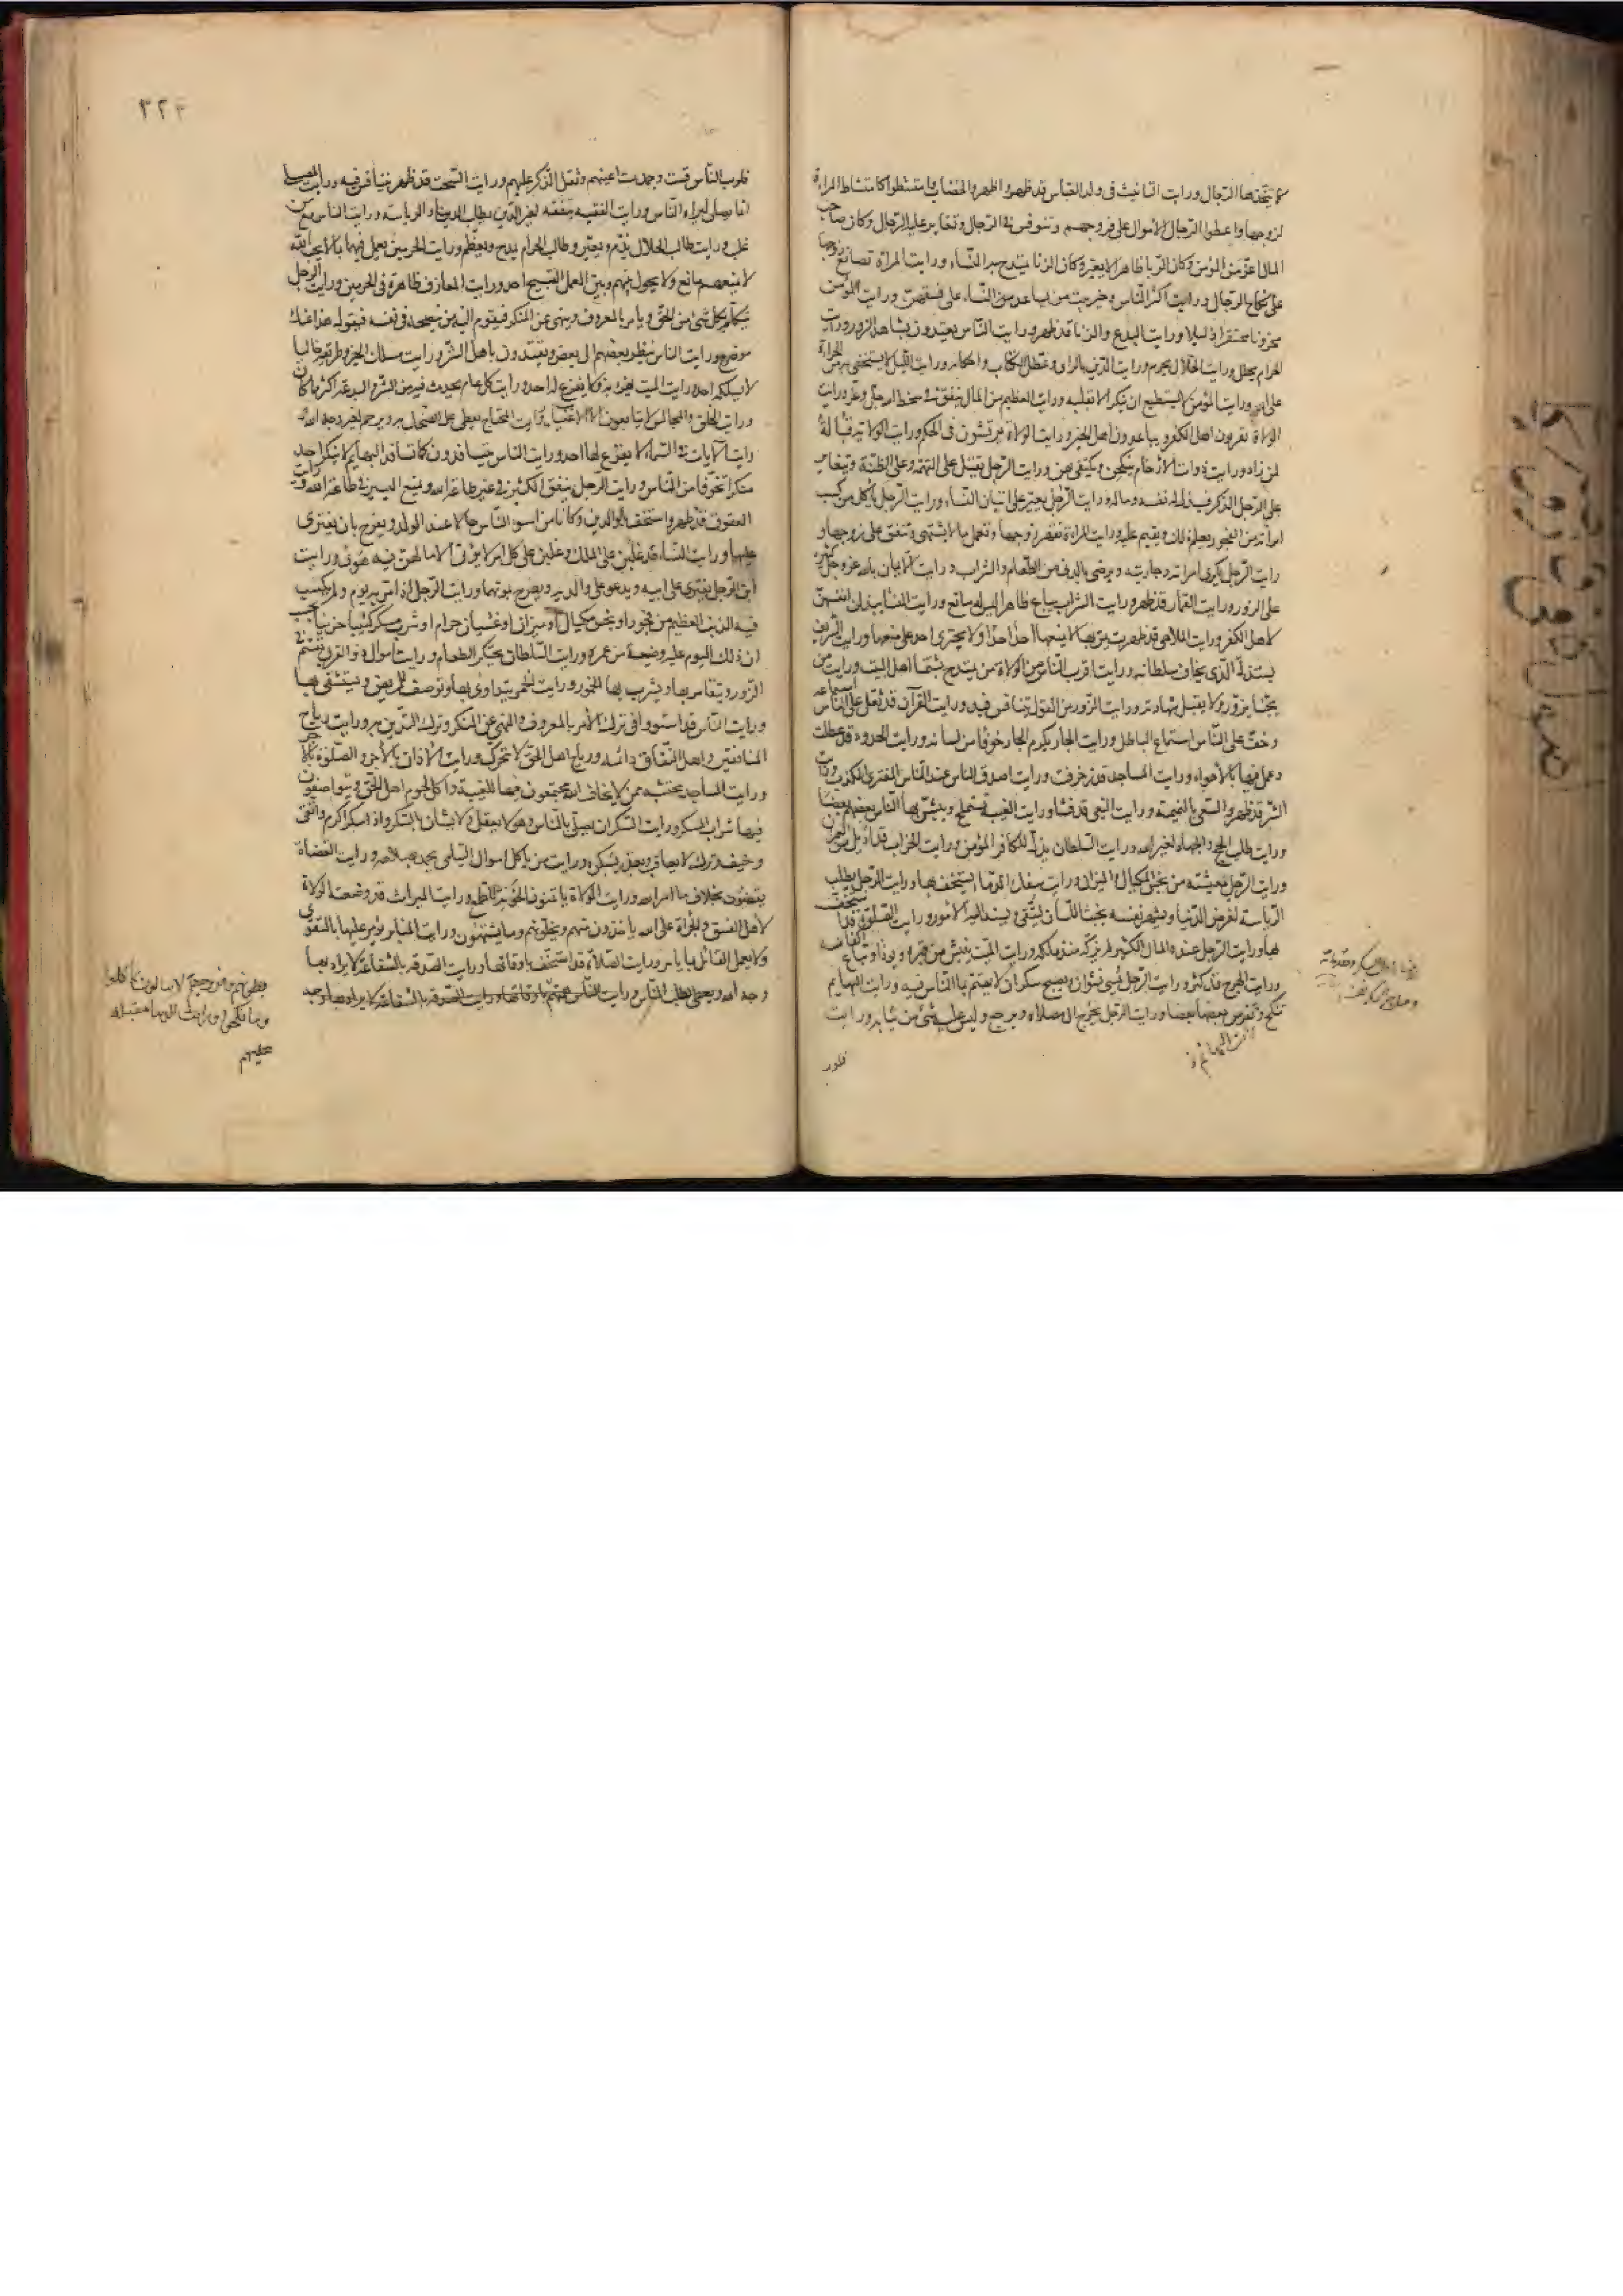 كما يتخذها الرجال ورايت التانيث فى ولد العباس قد ظهر واظهروا الخضاب وامتشطوا كما تمتشط المراة
لزوجها واعطوا الرجال الاموال على فروجهم وتنوفس فى الرجل وتغاير عليه الرجال وكان صاحب
المال اعز من المؤمن وكان الربا ظاهرا لا يعير وكان الزنا يمتدح به النساء ورايت المراة تصانع زوجها
على نكاح الرجال ورايت اكثر الناس وخير بيت من يساعد النساء على فسقهن ورايت المؤمن
محزونا محتقرا ذليلا ورايت البدع والزنا قد ظهر ورايت الناس يعتدون بشاهد الزور ورايت
الحرام يحلل ورايت الحلال يحرم ورايت الدين بالراى وعطل الكتاب واحكامه ورايت الليل لا يستخفى به من الجراة
على الله ورايت المؤمن لا يستطيع ان ينكر الا بقلبه ورايت العظيم من المال ينفق فى سخط الله عز وجل ورايت
الولاة يقربون اهل الكفر ويباعدون اهل الخير ورايت الولاة يرتشون فى الحكم ورايت الولاية قبالة
لمن زاد ورايت ذوات الارحام ينكحن ويكتفى بهن ورايت الرجل يقتل على التهمة وعلى الظنة ويتغاير
على الرجل الذكر فيبذل له نفسه وماله ورايت الرجل يعير على اتيان النساء ورايت الرجل ياكل من كسب
امراته من الفجور يعلم ذلك ويقيم عليه ورايت المراة تقهر زوجها وتعمل ما لا يشتهى وتنفق على زوجها و
رايت الرجل يكرى امراته وجاريته ويرضى بالدنى من الطعام والشراب ورايت الايمان بالله عز وجل كثيرة
على الزور ورايت القمار قد ظهر ورايت الشراب يباع ظاهرا ليس له مانع ورايت النساء يبذلن انفسهن
لاهل الكفر ورايت الملاهى قد ظهرت يمر بها لا يمنعها احد احدا ولا يجترى احد على منعها ورايت الشريف
يستذله الذى يخاف سلطانه ورايت اقرب الناس من الولاة من يمتدح بشتمنا اهل البيت ورايت من
يحبنا يزور ولا يقبل شهادته ورايت الزور من القول يتنافس فيه ورايت القرآن قد ثقل على الناس استماعه
وخف على الناس استماع الباطل ورايت الجار يكرم الجار خوفا من لسانه ورايت الحدود قد عطلت
وعمل فيها بالاهواء ورايت المساجد قد زخرفت ورايت اصدق الناس عند الناس المفترى الكذب ورايت
الشر قد ظهر والسعى بالنميمة ورايت البغى قد فشا ورايت الغيبة تستملح ويبشر بها الناس بعضهم بعضا
ورايت طلب الحج والجهاد لغير الله ورايت السلطان يذل للكافر المؤمن ورايت الخراب قد اديل من العمران
ورايت الرجل معيشته من بخس المكيال والميزان ورايت سفك الدماء يستخف بها ورايت الرجل يطلب
الرياسة لغرض الدنيا ويشهر نفسه بخبث اللسان ليتقى ويسند اليه الامور ورايت الصلوة قد استخف
بها ورايت الرجل عنده المال الكثير لم يزكه منذ ملكه ورايت الميت ينبش من قبره ويؤذى وتباع اكفانه
ورايت الهرج قد كثر ورايت الرجل يمسى نشوان ويصبح سكران لا يهتم بما الناس فيه ورايت البهايم
تنكح ورايت البهائم تفرس بعضها بعضا ورايت الرجل يخرج الى مصلاه ويرجع وليس عليه شئ من ثيابه ورايت
قلوب
٣٢٣
قلوب الناس قد قست وجمدت اعينهم وثقل الذكر عليهم ورايت السحت قد ظهر يتنافس فيه ورايت المصلى
انما يصلى ليراه الناس ورايت الفقيه يتفقه لغير الدين يطلب الدنيا والرياسة ورايت الناس مع من
غلب ورايت طالب الحلال يذم ويعير وطالب الحرام يمدح ويعظم ورايت الحرمين يعمل فيهما بما لا يحب الله
لا يمنعهم مانع ولا يحول بينهم وبين العمل القبيح احد ورايت المعازف ظاهرة فى الحرمين ورايت الرجل
يتكلم بكل شئ من الحق ويامر بالمعروف وينهى عن المنكر فيقوم اليه من ينصحه فى نفسه فيقول هذا عنك
موضوع ورايت الناس ينظر بعضهم الى بعض ويقتدون باهل الشر ورايت مسلك الخير وطريقه خاليا
لا يسلكه احد ورايت الميت يهزء به ولا يفزع له احد ورايت كل عام يحدث فيه من الشر والبدعة اكثر مما كان
ورايت الخلق والمجالس لا يتابعون الا الاغنياء ورايت المحتاج يعطى على الضحك به ويرحم لغير وجه الله و
رايت الآيات فى السماء لا يفزع لها احد ورايت الناس يتسافدون كما تسافد البهايم لا ينكر احد
منكرا تخوفا من الناس ورايت الرجل ينفق الكثير فى غير طاعة الله ويمنع اليسير فى طاعة الله ورايت
العقوق قد ظهر واستخف بالوالدين وكانا من اسوء الناس حالا عند الولد ويفرح بان يفترى
عليهما ورايت النساء قد غلبن على الملك وغلبن على كل امر لا يؤتى الا ما لهن فيه هوى ورايت
ابن الرجل يفترى على ابيه ويدعو على والديه ويفرح بموتهما ورايت الرجل اذا مر به يوم ولم يكسب
فيه الذنب العظيم من فجور او بخس مكيال او ميزان او غشيان حرام او شرب مسكر كئيبا حزينا يحسب
ان ذلك اليوم عليه وضيعة من عمره ورايت السلطان يحتكر الطعام ورايت اموال ذوى القربى تقسم فى
الزور ويتقامر بها ويشرب بها الخمور ورايت الخمر يتداوى بها وتوصف للمريض ويستشفى بها
ورايت الناس قد استووا فى ترك الامر بالمعروف والنهى عن المنكر وترك التدين به ورايت رياح
المنافقين واهل النفاق دائمة ورياح اهل الحق لا تحرك ورايت الاذان بالاجر والصلوة بالاجر
ورايت المساجد محتشية ممن لا يخاف الله يجتمعون فيها للغيبة واكل لحوم اهل الحق ويتواصفون
فيها شراب المسكر ورايت السكران يصلى بالناس وهو لا يعقل ولا يشان بالسكر واذا سكر اكرم واتقى
وخيف وترك لا يعاقب ويعذر بسكره ورايت من ياكل اموال اليتامى يحمد بصلاحه ورايت القضاة
يقضون بخلاف ما امر الله ورايت الولاة ياتمنون الخونة للطمع ورايت الميراث قد وضعته الولاة
لاهل الفسق والجراة على الله ياخذون منهم ويخلونهم وما يشتهون ورايت المنابر يؤمر عليها بالتقوى
ولا يعمل القائل بما يامر ورايت الصلاة قد استخف باوقاتها ورايت الصدقة بالشفاعة لا يراد بها
وجه الله ويعطى لطلب الناس ورايت الناس همهم
بطونهم وفروجهم لا يبالون بما اكلوا
وما نكحوا ورايت الدنيا مقبلة
عليهم